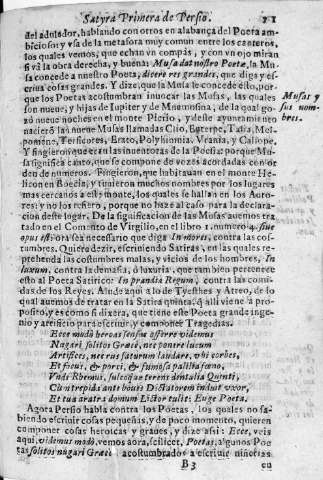 Satyra Primera de Persio. 71
del adulador, hablando con otros en alabança del Poeta am-
bicioso: y vsa de la metafora muy comun entre los canteros,
los quales vemos, que echan vn compàs, y con vn ojo miran
si và la obra derecha, y buena: Musa dat nostro Poetæ, la Mu
sa concede a nuestro Poeta, dicere res grandes, que diga y es-
criua cosas grandes. Y dize, que la Musa le concede esto, por-
que los Poetas acostumbran inuocar las Musas, las quales
fueron nueue, y hijas de Iupiter y de Mnemosina, de la qual go-
zò nueue noches en el monte Pierio, y deste ayuntamiento
nacierõ las nueue Musas llamadas Clio, Euterpe, Talia, Mel-
pomene, Tersicores, Erato, Polyhimnia, Vrania, y Caliope.
Y fingieron que eran las inuentoras de la Poesia: porque Mu
sa significa canto, que se compone de vozes acordadas con or-
den de numeros. Fingieron, que habitauan en el monte He-
licon en Boecia; y tuuieron muchos nombres por los lugares
mas cercanos a este monte, los quales se hallan en los Auto-
res: y no los refiero, porque no haze al caso para la decla-
racion deste lugar. De la significacion de las Musas auemos tra
tado en el Comento de Virgilio, en el libro 1. numero 4. siue
opus est: ora sea necessario que diga In mores, contra las cos-
tumbres. Quiere dezir, escriuiendo Satiras, en las quales re-
prehenda las costumbres malas, y vicios de los hombres, In
luxum, contra la demasia, ò luxuria, que tambien pertenece
esto al Poeta Satirico: In prandia Regum, contra las comi-
das de los Reyes. Alude aqui a lo de Tyesthes y Atreo, de lo
qual auemos de tratar en la Satira quinta, q̃ alli viene a pro-
posito, y es como si dixera, que tiene este Poeta grande inge-
nio y artificio para escriuir, y componer Tragedias.
Ecce modò heroas sensus afferre videmus
Nugari solitos Græcè, nec ponere lucum
Artifices, nec rus saturum laudare, vbi corbes,
Et focus, & porci, & fumosa palilia fœno,
Vnde Remus, sulcoque terens dentalia Quinti,
Cùm trepida ante boues Dictatorem induit vxor,
Et tua aratra domum Lictor tulit: Euge Poeta.
Agora Persio habla contra los Poetas, los quales no sa-
biendo escriuir cosas pequeñas, y de poco momento, quieren
componer cosas heroicas y graues, y dize assi: Ecce, veis
aqui, videmus modò, vemos aora, scilicet, Poetas, algunos Poe
tas solitos nugari Græcè acostumbrados a escriuir niñerias
B 3 en
Musas y
sus nom-
bres.